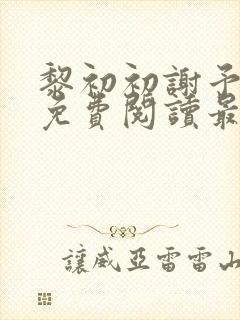 黎初初謝予
免費閱讀最
讓威亞雷雷山